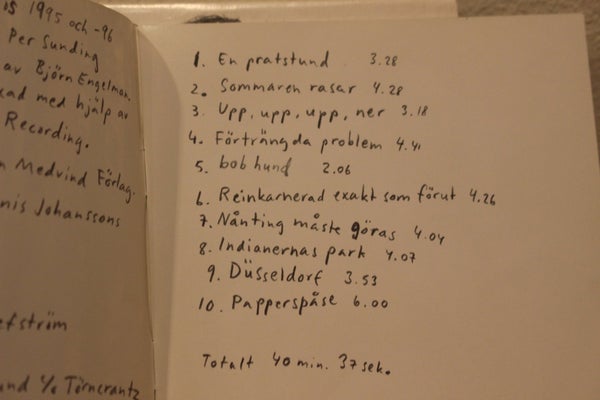 1995 och -96
Per Sunding
av Björn Engelman.
med hjälp av
Recording.
Medvind Förlag.
Johanssons
und c/o Törncrantz
1. En pratstund 3.28
2. Sommaren rasar 4.28
3. Upp, upp, upp, ner 3.18
4. Förträngda problem 4.41
5. bob hund 2.06
6. Reinkarnerad exakt som förut 4.26
7. Nånting måste göras 4.04
8. Indianernas park 4.07
9. Düsseldorf 3.53
10. Papperspåse 6.00
Totalt 40 min. 37 sek.